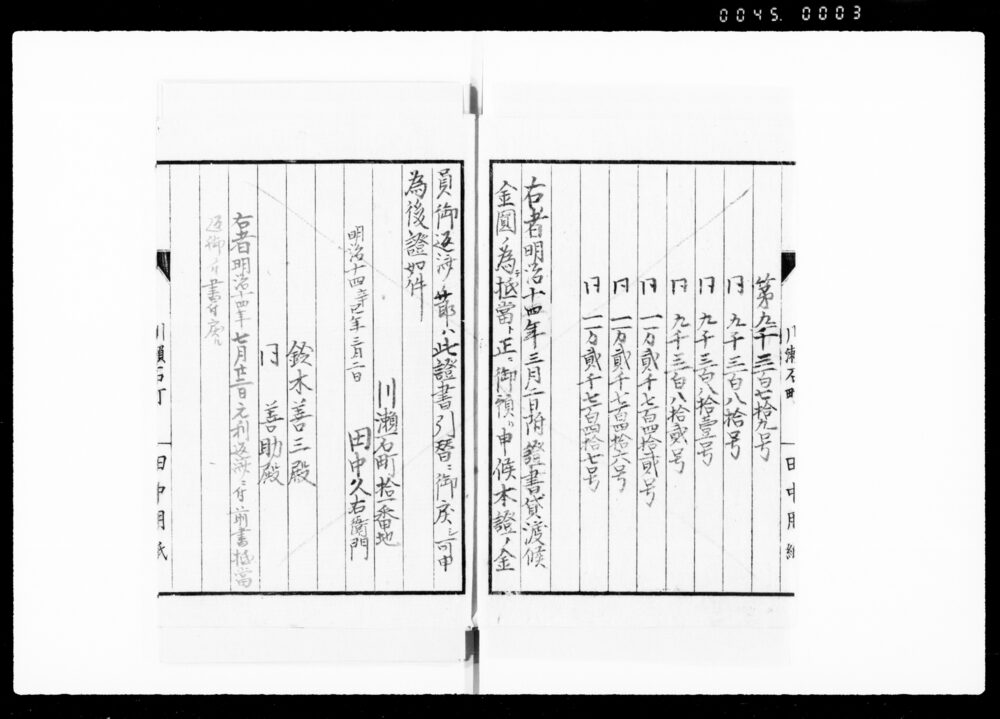 0045. 0003
第九千三百七拾九号
同九千三百八拾号
同九千三百八拾壹号
同九千三百八拾貳号
同一万貳千七百四拾貳号
同一万貳千七百四拾六号
同一万貳千七百四拾七号
右者明治十四年三月二日附證書貸渡候
金圓ノ為抵當ニ正ニ御預リ申候本證ノ金
川瀬石町
田中用紙
員御返済ノ節ハ此證書引替ニ御戻シ可申
為後證如件
明治十四年辛巳年三月二日
川瀬石町拾一番地
田中久右衛門
鈴木善三殿
同 善助殿
右者明治十四年七月廿二日元利返済ニ付前書抵當
返御ノ書付戻ル
川瀬石町
田中用紙